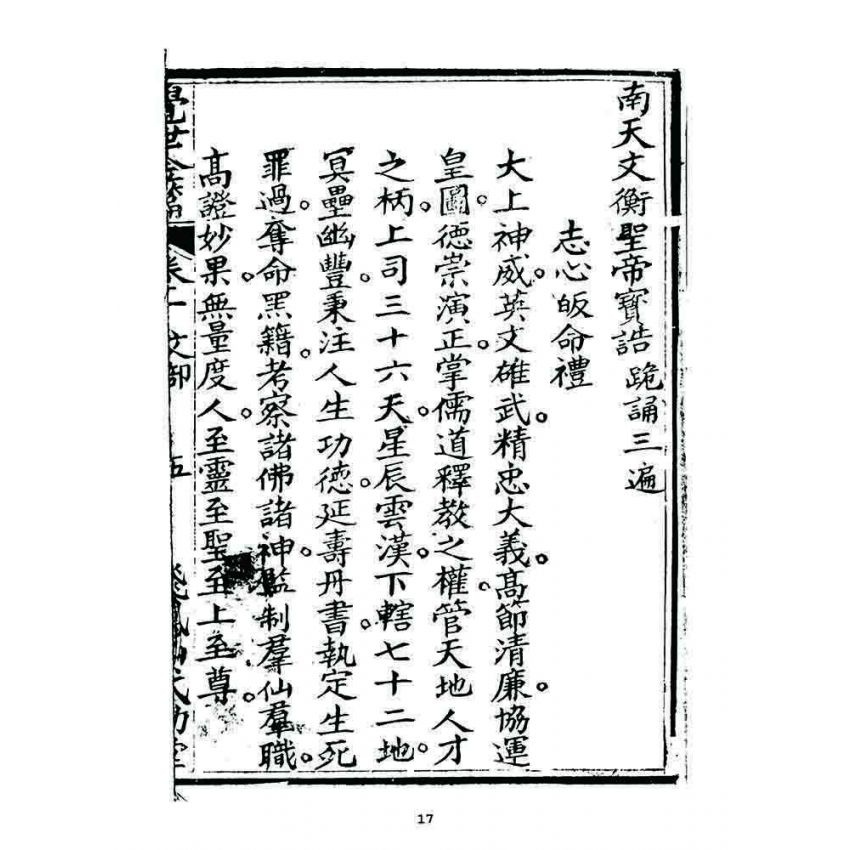 南天文衡聖帝寳誥 跪誦三遍
志心皈命禮
大上神威。英文雄武。精忠大義。高節清廉。協運
皇圖。德崇演正。掌儒道釋教之權。管天地人才
之柄。上司三十六天。星辰雲漢。下轄七十二地。
冥壘幽豐。秉注人生功德。延壽丹書。執定生死
罪過。奪命黑籍。考察諸佛諸神。監制羣仙羣職。
高證妙果。無量度人。至靈至聖。至上至尊。
文部
17